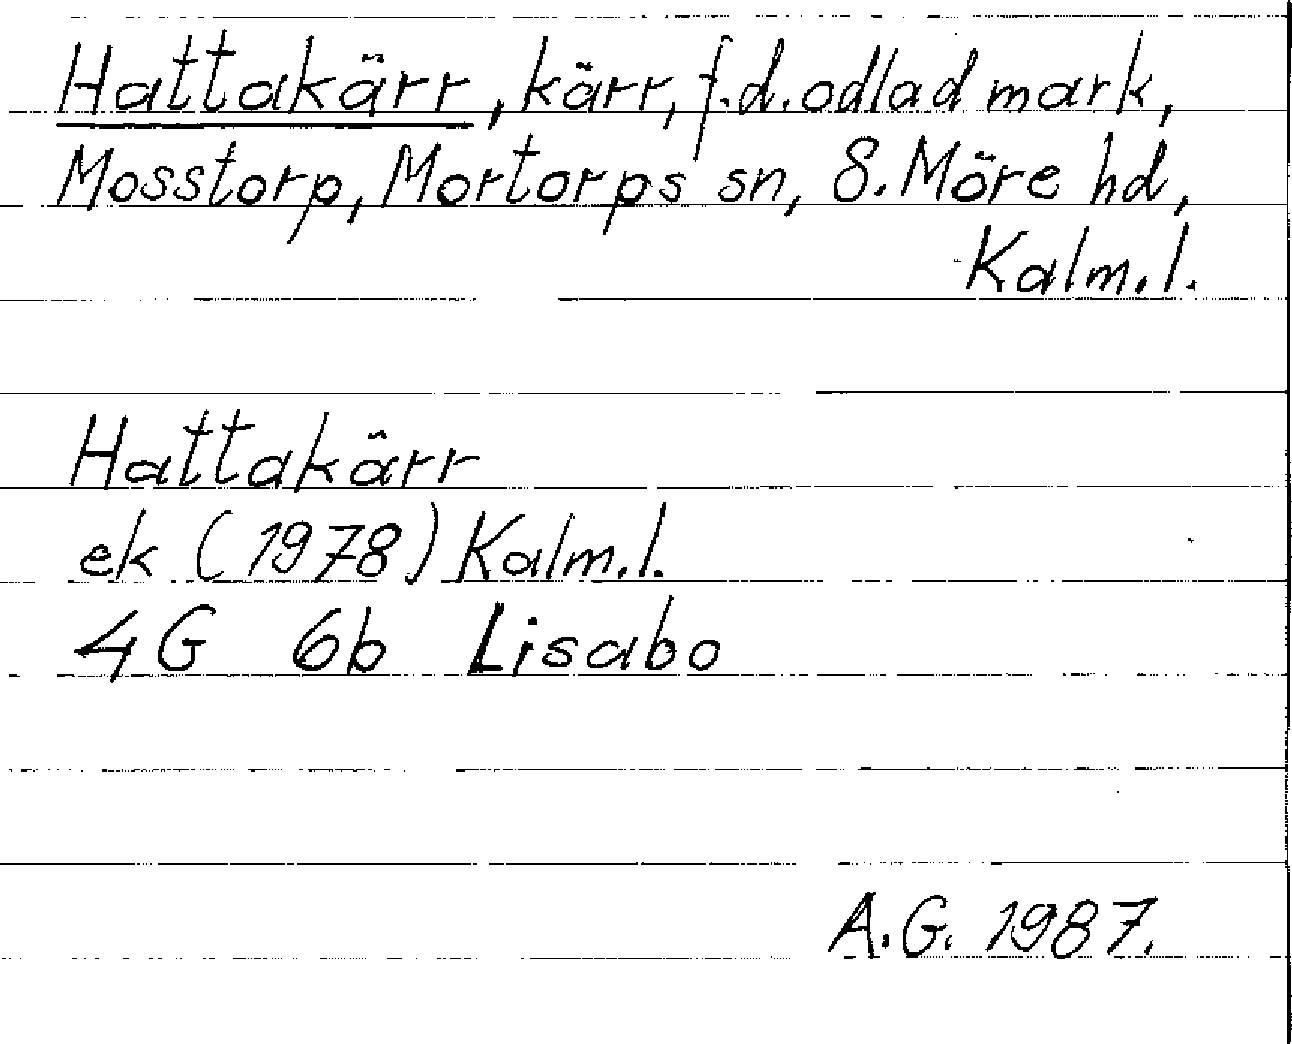 Hattakärr, kärr, f.d. odlad mark,
Mosstorp, Mortorps sn, S. Möre hd,
Kalm. l.
Hattakärr
ek (1978) Kalm. l.
4G 6b Lisabo
A.G. 1987.